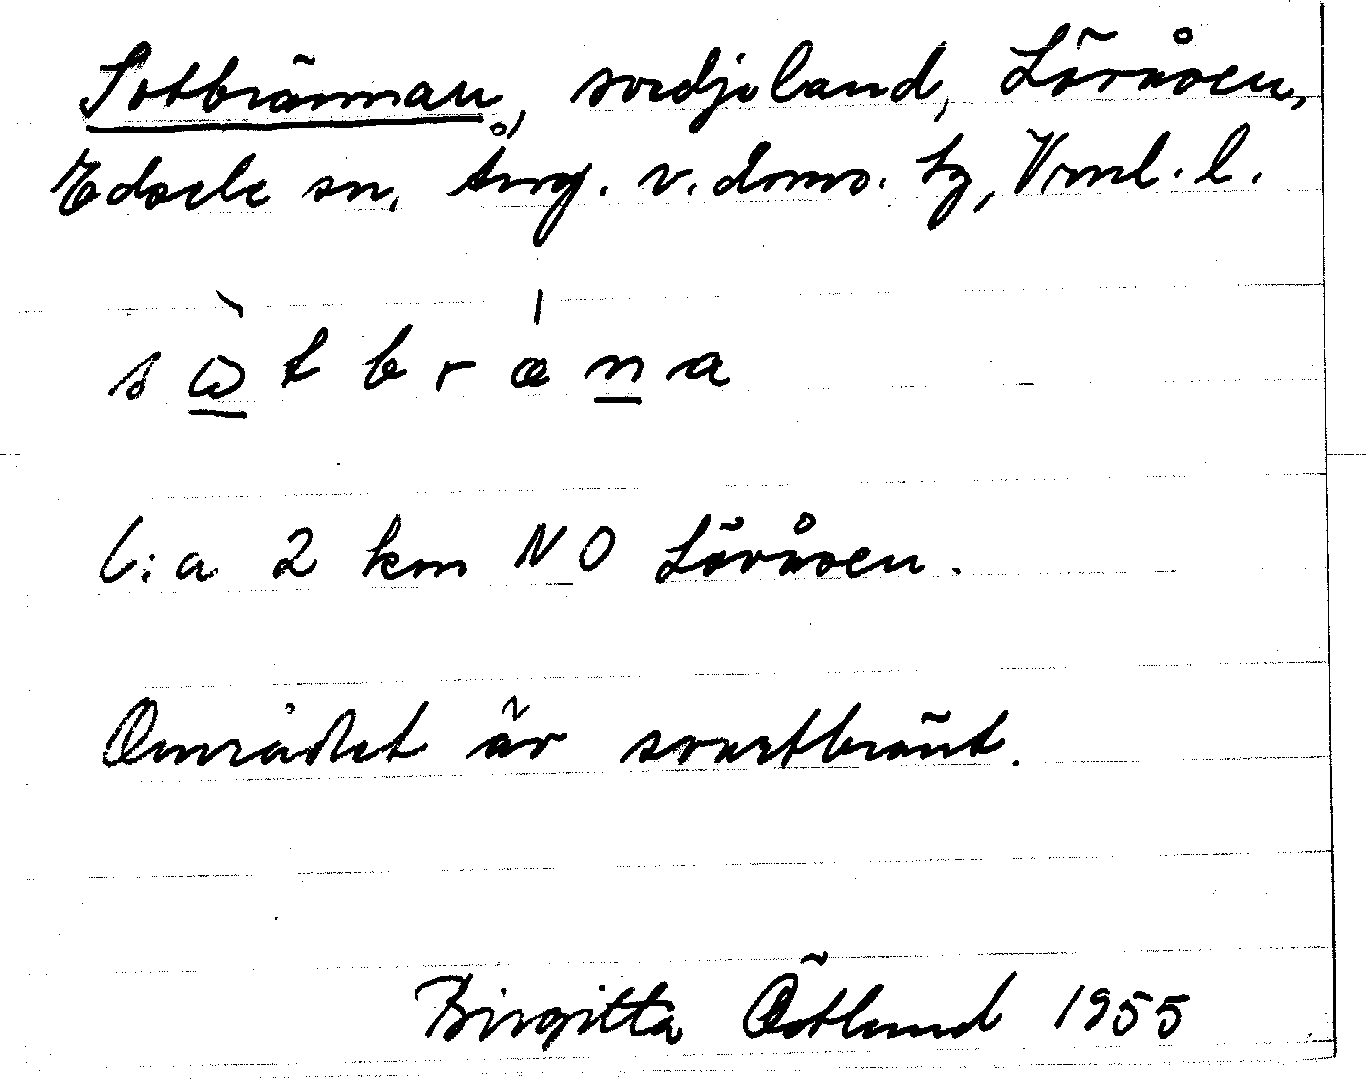 Sotbrännan, svedjeland, Lövåsen,
Edsele sn, Ång. v. doms. tg, Vrnl. l.
sωtbræna
C:a 2 km NO Lövåsen.
Området är svartbränt.
Birgitta Östlund 1955